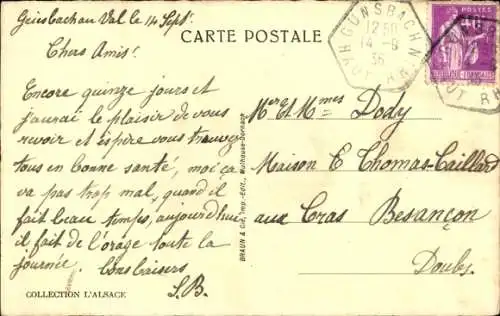 Griesbach au Val le 14 Sept.
Chers Amis!
Encore quinze jours et
j'aurai le plaisir de vous
revoir et éspère vous trouver
tous en bonne santé, moi ça
va pas trop mal, quand il
fait beau temps, aujourd'hui
il fait de l'orage toute la
journée. Bons baisers
S.B.
COLLECTION L'ALSACE
CARTE POSTALE
BRAUN & Cie, Imp.-Édit., Mulhouse-Dornach
GUNSBACH
12 30
14 - 9
36
HAUT RHIN
POSTES
Mr et Mmes Dody
Maison E Thomas-Caillard
aux Cras Besançon
Doubs.